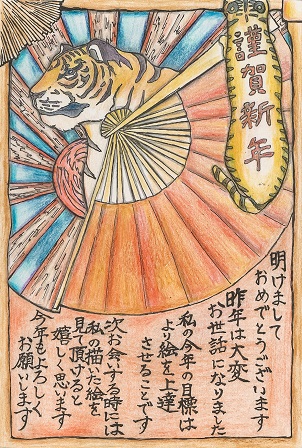 謹賀新年
明けまして
おめでとうございます
昨年は大変
お世話になりました
私の今年の目標は
より絵を上達
させることです
次お会いする時には
私の描いた絵を
見て頂けると
嬉しく思います
今年もよろしく
お願いします